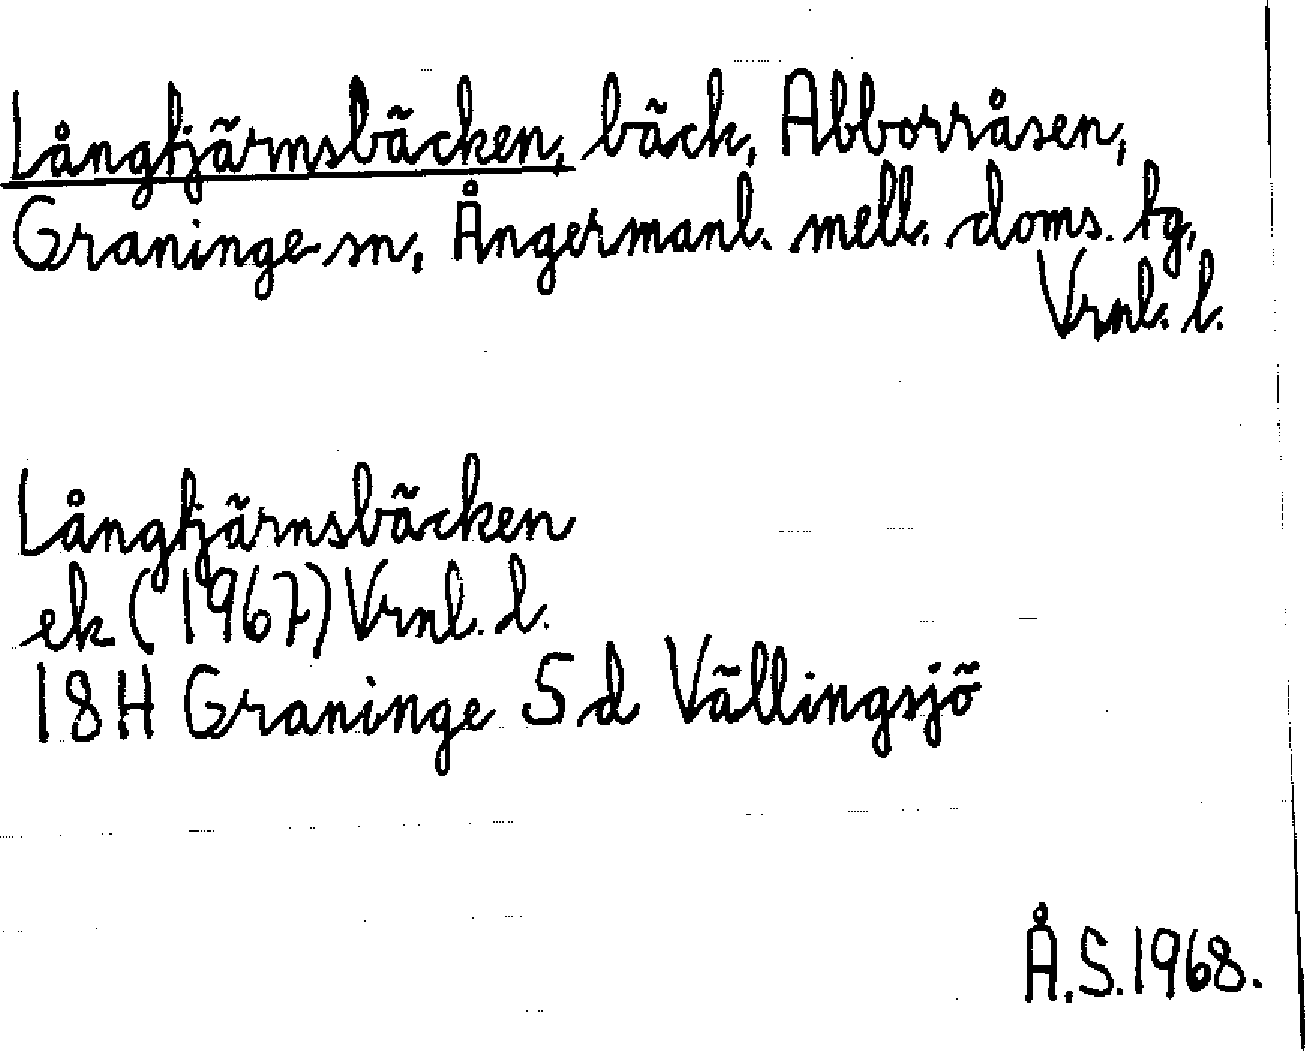 Långtjärnsbäcken, bäck, Abborråsen,
Graninge sn, Ångermanl. mell. doms. tg,
Vrnl. l.
Långtjärnsbäcken
ek (1967) Vrnl. l.
18H Graninge Sd Vällingsjö
Å.S. 1968.